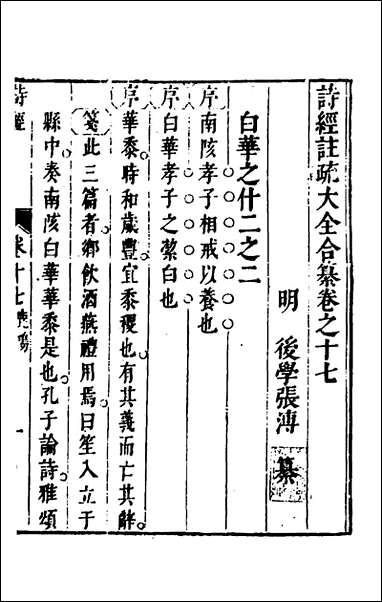 詩經註疏大全合纂卷之十七
明 後學張溥 纂
白華之什二之二
序 南陔孝子相戒以養也
序 白華孝子之潔白也
序 華黍時和歲豐宜黍稷也有其義而亡其辭
箋 此三篇者鄉飲酒燕禮用焉曰笙入立于
縣中奏南陔白華華黍是也孔子論詩雅頌
詩經 卷十七 一